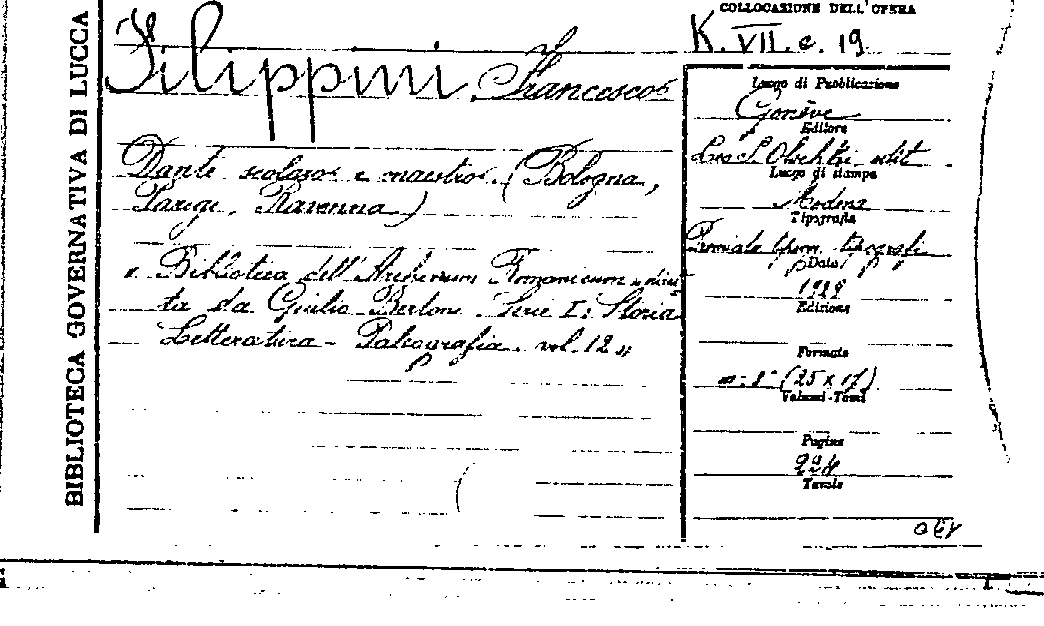 BIBLIOTECA GOVERNATIVA DI LUCCA
COLLOCAZIONE DELL'OPERA
K. VII. c. 19
Filippini Francesco
Dante scolaro e maestro. (Bologna,
Parigi, Ravenna)
" Biblioteca dell'Archivum Romanicum " diret
ta da Giulio Bertoni Serie I: Storia
Letteratura - Paleografia. vol. 12 "
Luogo di Pubblicazione
Genève
Editore
Leo S. Olschki edit.
Luogo di stampa
Modena
Tipografia
Premiata tipografia
Data
1929
Edizione
Formato
in-8° (25 x 17)
Volumi-Tomi
Pagine
224
Tavole